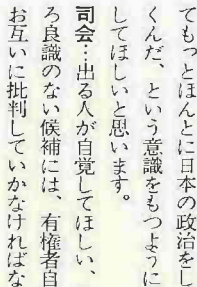 てもっとほんとに日本の政治をし
くんだ、という意識をもつように
してほしいと思います。
司会…出る人が自覚してほしい、
ろ良識のない候補には、有権者自
お互いに批判していかなければな